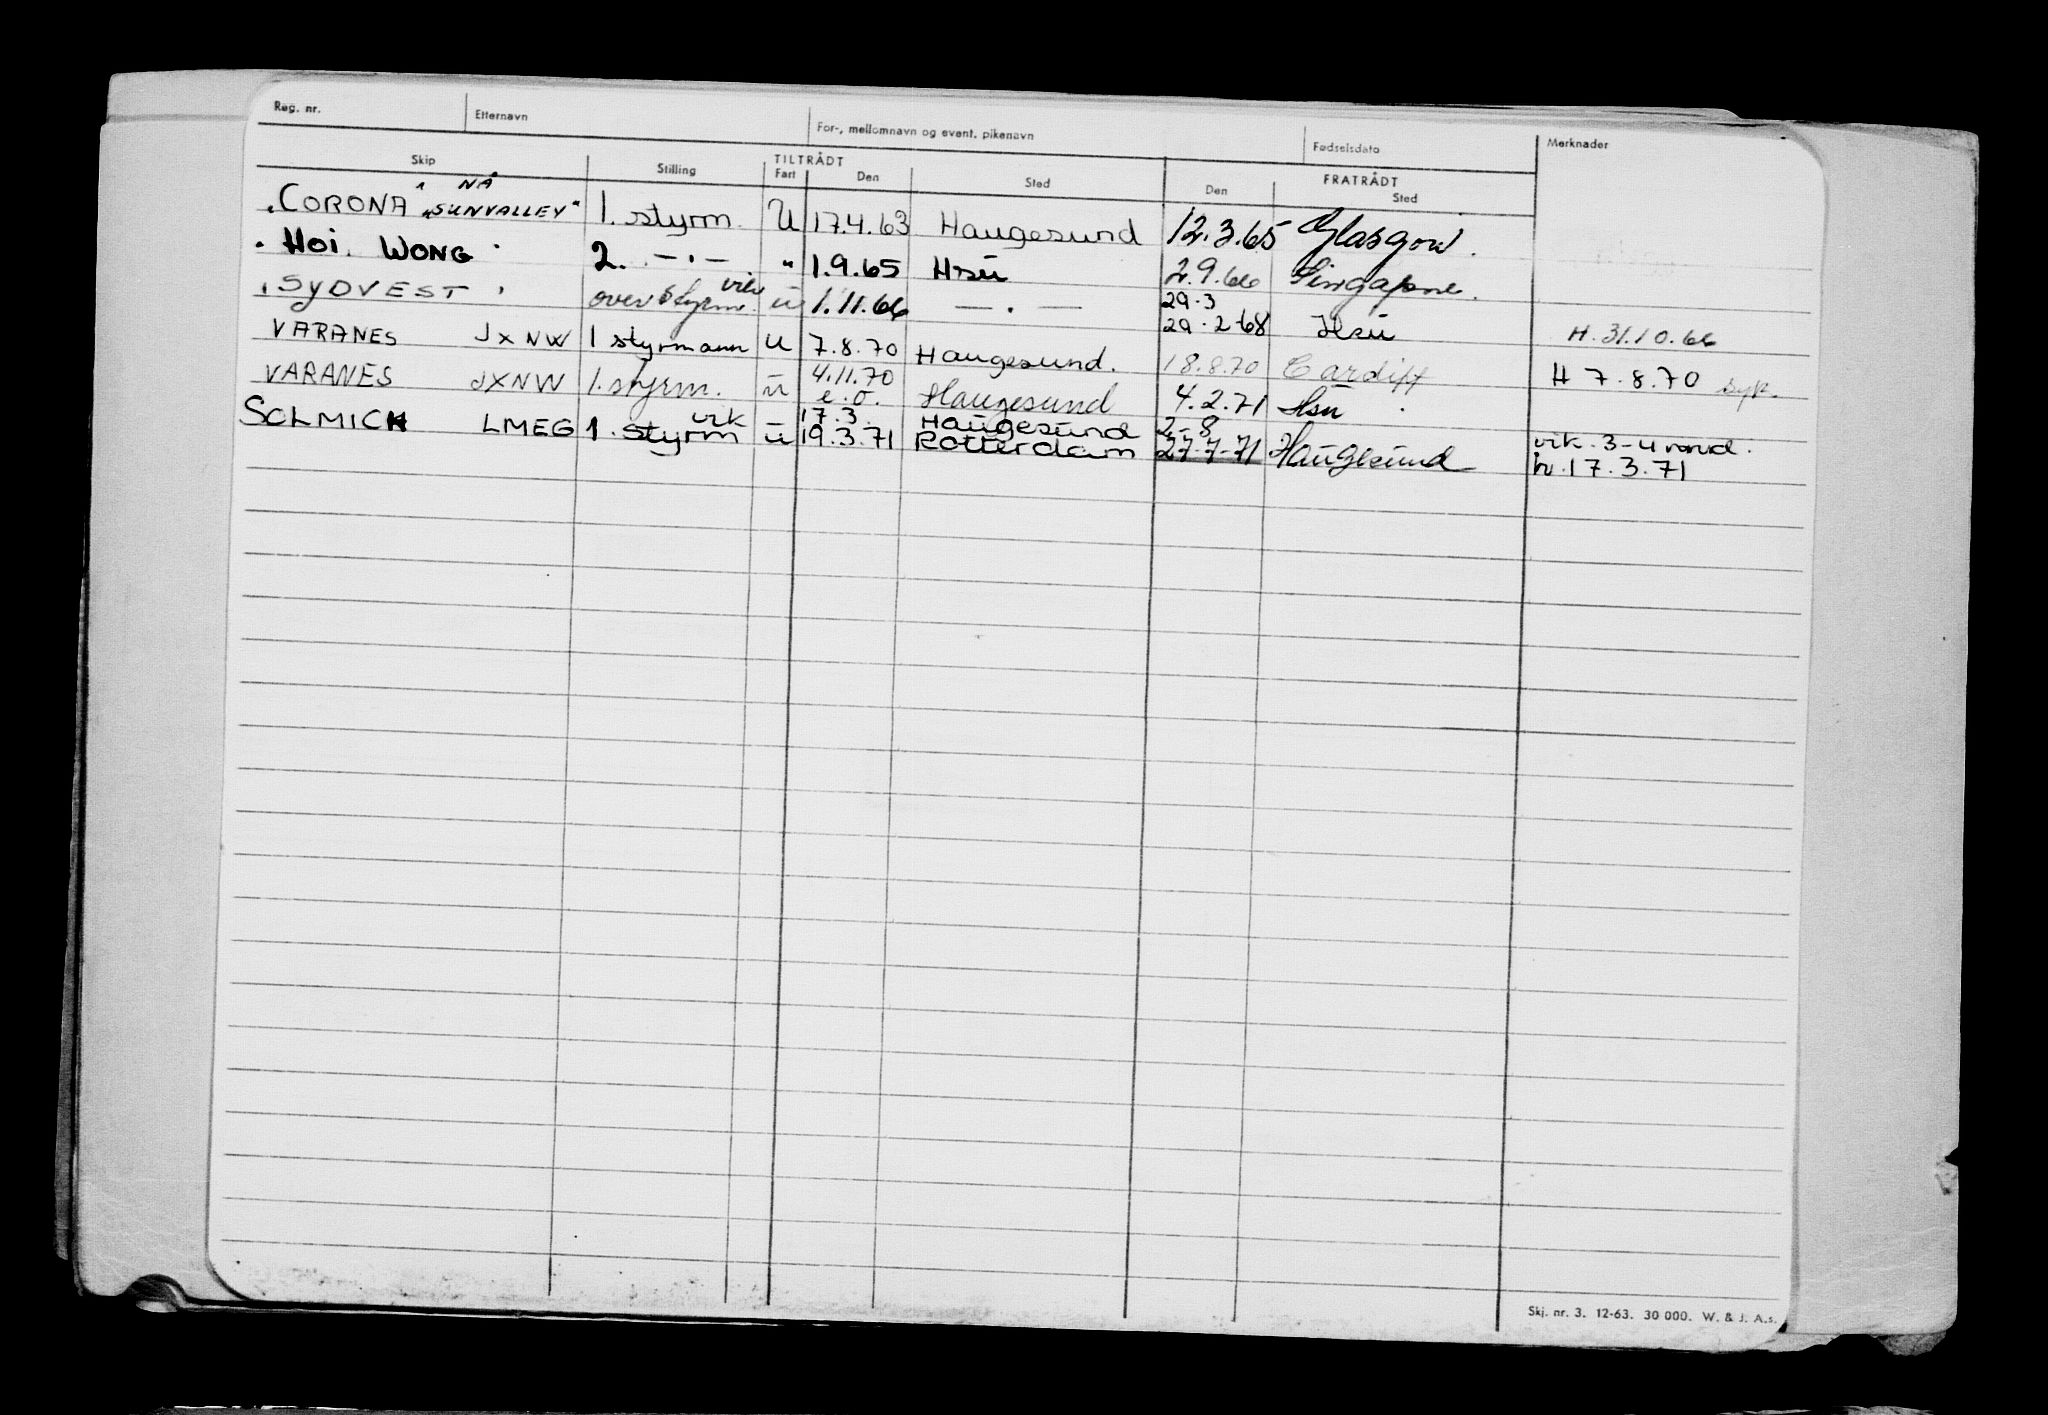 Reg. nr. Etternavn For-, mellomnavn og event. pikenavn Fødselsdato Merknader
Skip Stilling TILTRÅDT FRATRÅDT
Fart Den Sted Den Sted
NÅ
"CORONA" "SUNVALLEY" 1. styrm. U 17.4.63 Haugesund 12.3.65 Glasgow.
" HOI. WONG " 2. —"— " 1.9.65 Hsu 2.9.66 Singapore.
"SYDVEST" overstyrm. vik ū 1.11.66 — " — 29.3 29.2-68 Hsu H. 31.10.66
VARANES JXNW 1 styrmann U 7.8.70 Haugesund. 18.8.70 Cardiff H 7.8.70 syk.
VARANES JXNW 1. styrm. ū 4.11.70 e.o. Haugesund 4.2.71 Hsu.
SOLMICH LMEG 1. styrm vik ū 17.3 Haugesund 2-8
19.3.71 Rotterdam 27-7-71 Haugesund vik. 3-4 mnd.
hv. 17.3.71
Skj. nr. 3. 12-63. 30 000. W. & J. A.s.